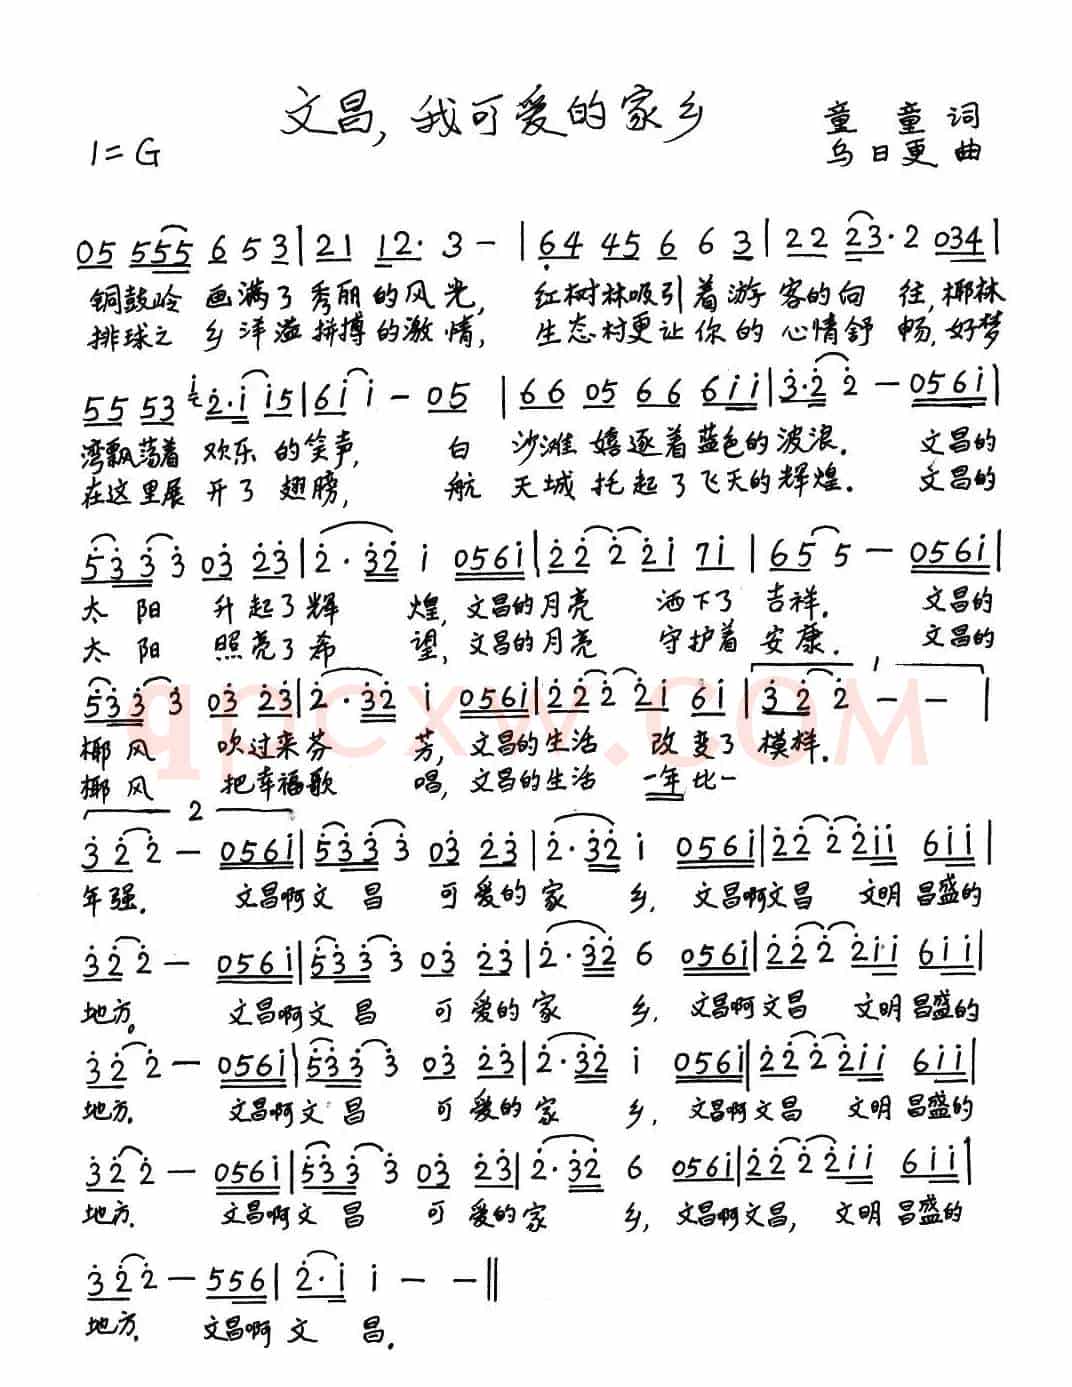 文昌,我可爱的家乡
童童词
1=G
乌日更曲
05 555 653|21 12· 3 -|64 45 6 6 3|22 23·2 034|
铜鼓岭 画满了秀丽的风光, 红树林吸引着游客的向往,椰林
排球之乡洋溢拼搏的激情, 生态村更让你的心情舒畅,好梦
55 53 i 2·i i5|6i i - 05|66 05 66 6ii|3·2 2 - 056i|
湾飘荡着 欢乐的笑声, 白沙滩嬉逐着蓝色的波浪. 文昌的
在这里展开了翅膀, 航天城托起了飞天的辉煌. 文昌的
533 3 03 23|2·32 i 056i|22 22i 7i|65 5 - 056i|
太阳 升起了辉煌,文昌的月亮 洒下了吉祥. 文昌的
太阳 照亮了希望,文昌的月亮 守护着安康. 文昌的
533 3 03 23|2·32 i 056i|22 22i 6i|1 3 2 2 - -|
椰风 吹过来芬芳,文昌的生活 改变了模样.
椰风 把幸福歌唱,文昌的生活 一年比一
2
3 2 2 - 056i|533 3 03 23|2·32 i 056i|22 2 2ii 6ii|
年强. 文昌啊文昌 可爱的家乡, 文昌啊文昌 文明昌盛的
3 2 2 - 056i|533 3 03 23|2·32 6 056i|22 2 2ii 6ii|
地方。 文昌啊文昌 可爱的家乡, 文昌啊文昌 文明昌盛的
3 2 2 - 056i|533 3 03 23|2·32 i 056i|22 2 2ii 6ii|
地方. 文昌啊文昌 可爱的家乡, 文昌啊文昌 文明昌盛的
3 2 2 - 056i|533 3 03 23|2·32 6 056i|22 2 2ii 6ii|
地方. 文昌啊文昌 可爱的家乡,文昌啊文昌, 文明昌盛的
3 2 2 - 556|2·i i - -‖
地方. 文昌啊文昌.
qpcxw.COM